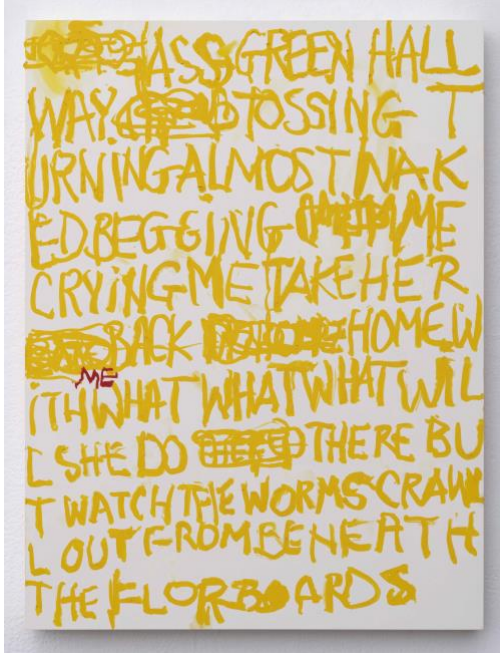 ASS GREEN HALL
WAY. TOSSING T
URNING ALMOST NAK
ED BEGGING ME
CRYING ME TAKE HER
BACK HOME. W
ME
ITH WHAT WHAT WHAT WIL
L SHE DO THERE BU
T WATCH THE WORMS CRAW
L OUT FROM BENEATH
THE FLORBOARDS